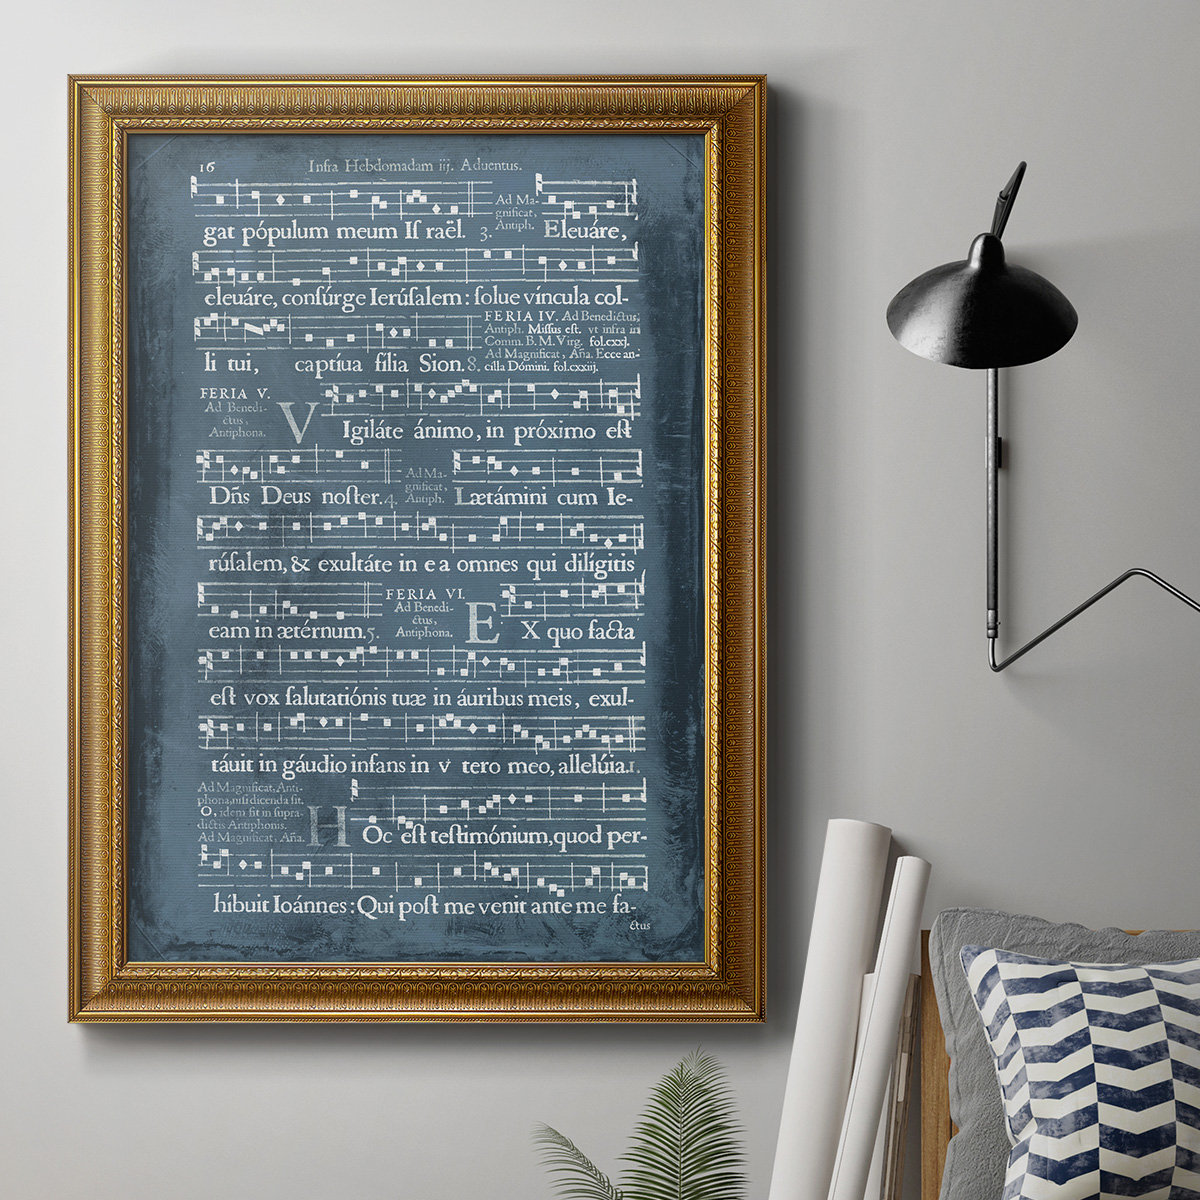 16 Infra Hebdomadam iij. Aduentus.
Ad Ma-
gnificat,
Antiph.
gat pópulum meum Iſ raël. 3. Eleuáre,
eleuáre, conſúrge Ieruſalem : ſolue víncula col-
FERIA IV. Ad Benedictus,
Antiph. Miſſus eſt. vt infra in
Comm. B. M. Virg. fol.cxxj.
Ad Magnificat, Aña. Ecce an-
cilla Dómini. fol.cxxiij.
li tui, captíua fília Sion. 8.
FERIA V.
Ad Benedi-
ctus,
Antiphona.
VIgiláte ánimo, in próximo eſt
Ad Ma-
gnificat,
Antiph.
Dñs Deus noſter. 4. Lætámini cum Ie-
rúſalem, & exultáte in e a omnes qui dilígitis
FERIA VI.
Ad Benedi-
ctus,
Antiphona.
eam in ætérnum. 5. EX quo facta
eſt vox ſalutatiónis tuæ in áuribus meis, exul-
táuit in gáudio infans in v tero meo, allelúia. 1.
Ad Magnificat, Anti-
phona, niſi dicenda ſit,
O, idem fit in ſupra-
dictis Antiphonis.
Ad Magnificat, Aña.
HOc eſt teſtimónium, quod per-
híbuit Ioánnes : Qui poſt me venit ante me fa-
ctus